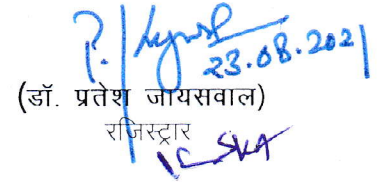 23.08.2021
(डॉ. प्रतेश जायसवाल)
रजिस्ट्रार